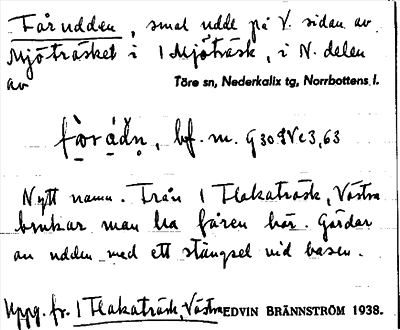 Fårudden, smal udde på V. sidan av
Mjöträsket i 1 Mjöträsk, i N. delen
av Töre sn, Nederkalix tg, Norrbottens l.
bf. m.
Nytt namn. Från 1 Flakaträsk, Västra
brukar man ha fåren här. Gärdar
av udden med ett stängsel vid basen.
Uppg. fr. 1 Flakaträsk, Västra EDVIN BRÄNNSTRÖM 1938.